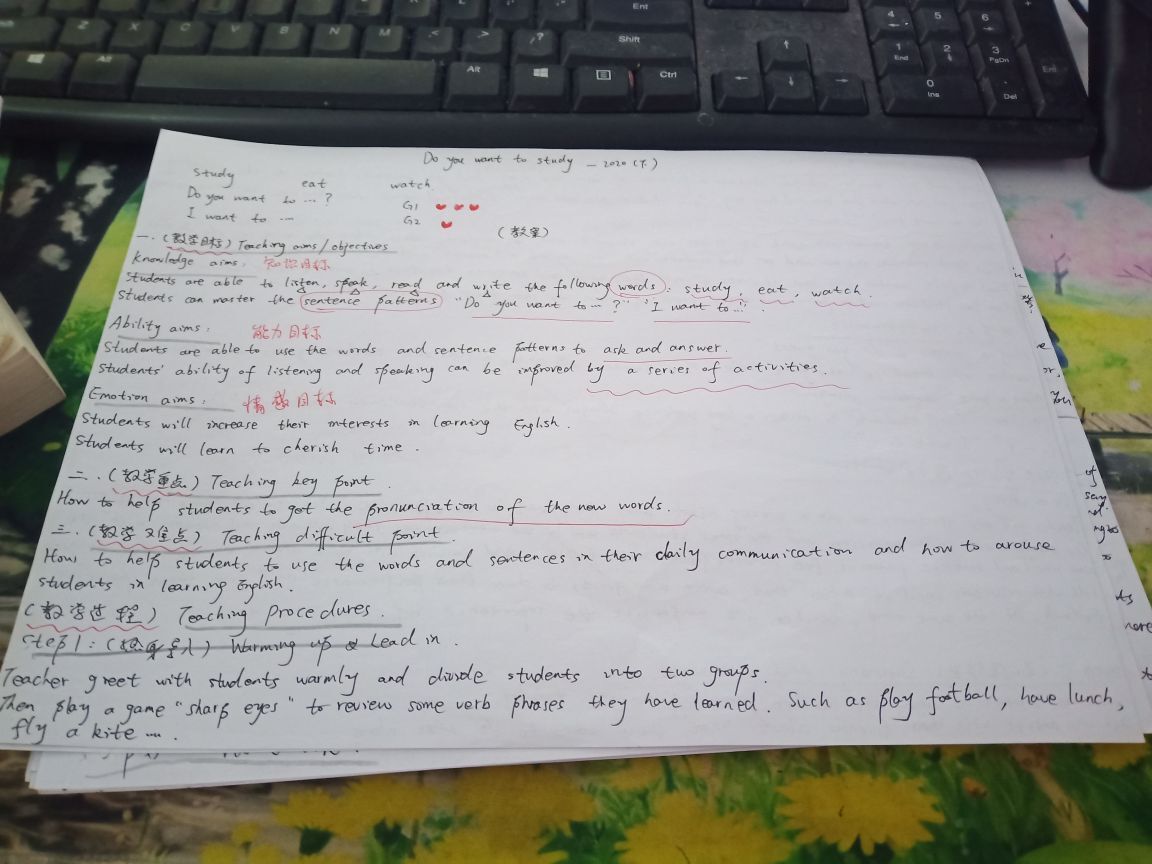 Ent
Z X C V B N M < > ? Shift
Alt Alt Ctrl
4 5 6
1 End 2 3 PgDn Ent
0 Ins . Del
Do you want to study — 2020 (下)
study eat watch
Do you want to ... ?
I want to ...
G1
G2
(教案)
一.(教学目标) Teaching aims/objectives
Knowledge aims: 知识目标
Students are able to listen, speak, read and write the following words: study, eat, watch.
Students can master the sentence patterns "Do you want to ... ?" "I want to ...".
Ability aims: 能力目标
Students are able to use the words and sentence patterns to ask and answer.
Students' ability of listening and speaking can be improved by a series of activities.
Emotion aims: 情感目标
Students will increase their interests in learning English.
Students will learn to cherish time.
二.(教学重点) Teaching key point.
How to help students to got the pronunciation of the new words.
三.(教学难点) Teaching difficult point.
How to help students to use the words and sentences in their daily communication and how to arouse
students in learning English.
(教学过程) Teaching Procedures.
Step1: Warming up & Lead in.
Teacher greet with students warmly and divide students into two groups.
Then play a game "sharp eyes" to review some verb phrases they have learned. Such as play football, have lunch,
fly a kite ....
You
of
say